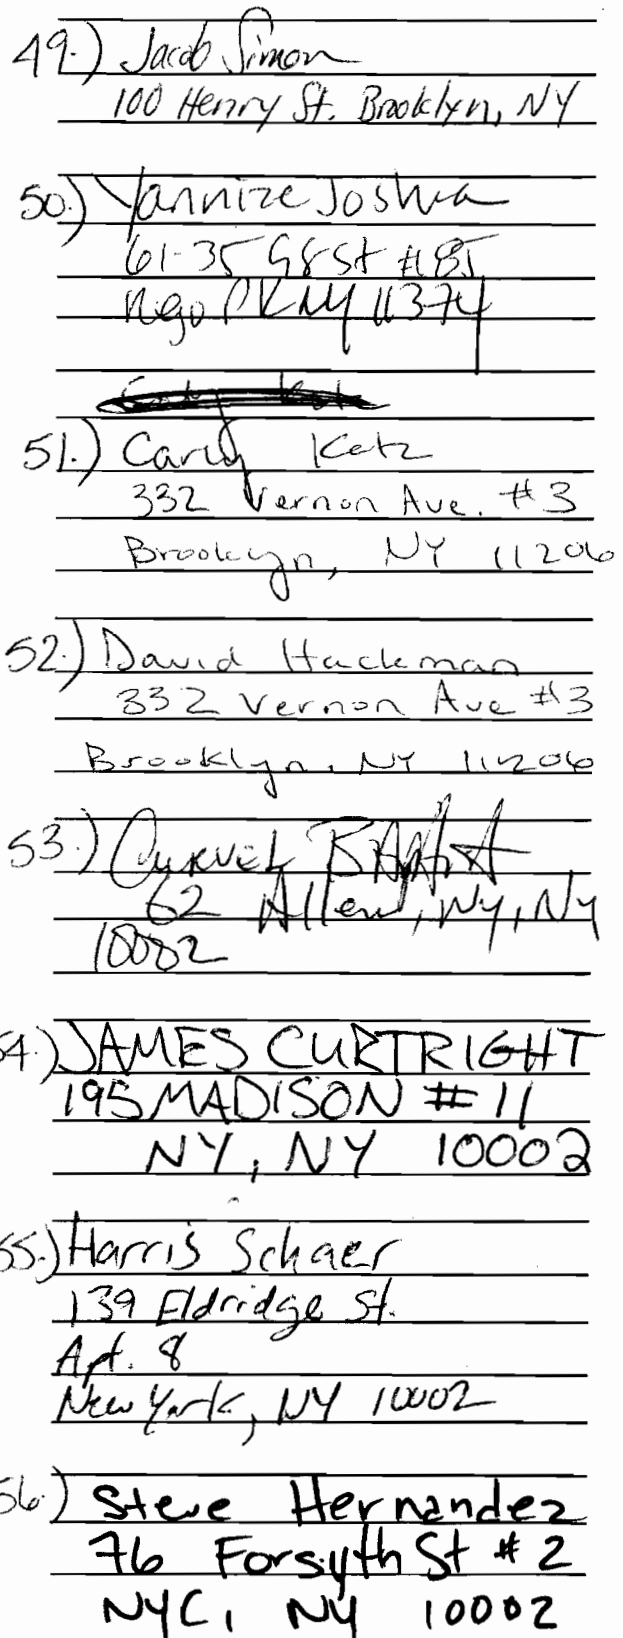 49.) Jacob Simon
100 Henry St. Brooklyn, NY
50.) Yannize Joshua
61-35 98 St #85
Rego PK NY 11374
51.) Carly Katz
332 Vernon Ave. #3
Brooklyn, NY 11206
52.) David Hackman
332 Vernon Ave #3
Brooklyn, NY 11206
53.)
62 Allen, NY, NY
10002
54.) JAMES CURTRIGHT
195 MADISON #11
NY, NY 10002
55.) Harris Schaer
139 Eldridge St.
Apt. 8
New York, NY 10002
56.) Steve Hernandez
76 Forsyth St #2
NYC, NY 10002